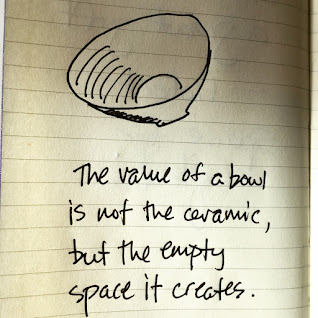 The value of a bowl
is not the ceramic,
but the empty
space it creates.